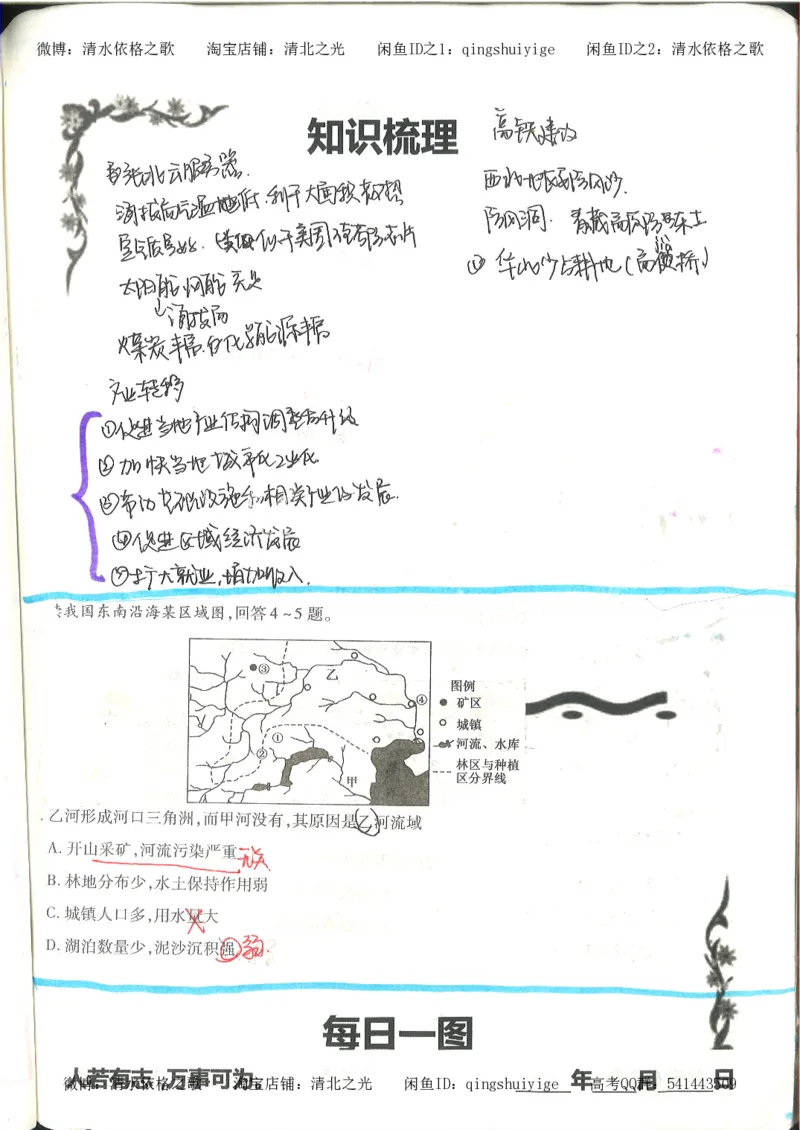 微博：清水依格之歌 淘宝店铺：清北之光 闲鱼ID之1：qingshuiyige 闲鱼ID之2：清水依格之歌
知识梳理
高铁建设
张北云服务器.
海拔高气温地低.利于大面积
太阳能.风能充足
煤炭丰富.能源丰富
产业转移
①促进当地产业结构调整和升级
②加快当地城市化工业化
③带动基础设施和相关产业的发展.
④促进区域经济发展
⑤扩大就业,增加收入.
西北地区防风沙.
防风洞. 青藏高原防冻土
少占耕地(高架桥)
我国东南沿海某区域图,回答4~5题。
③
乙
④
①
②
甲
图例
矿区
城镇
河流、水库
林区与种植
区分界线
乙河形成河口三角洲,而甲河没有,其原因是乙河流域
A. 开山采矿,河流污染严重 无关
B. 林地分布少,水土保持作用弱
C. 城镇人口多,用水量大
D. 湖泊数量少,泥沙沉积强 弱.
每日一图
人若有志,万事可为。
年 月 日
微博：清水依格之歌 淘宝店铺：清北之光 闲鱼ID：qingshuiyige 高考QQ群：541443509